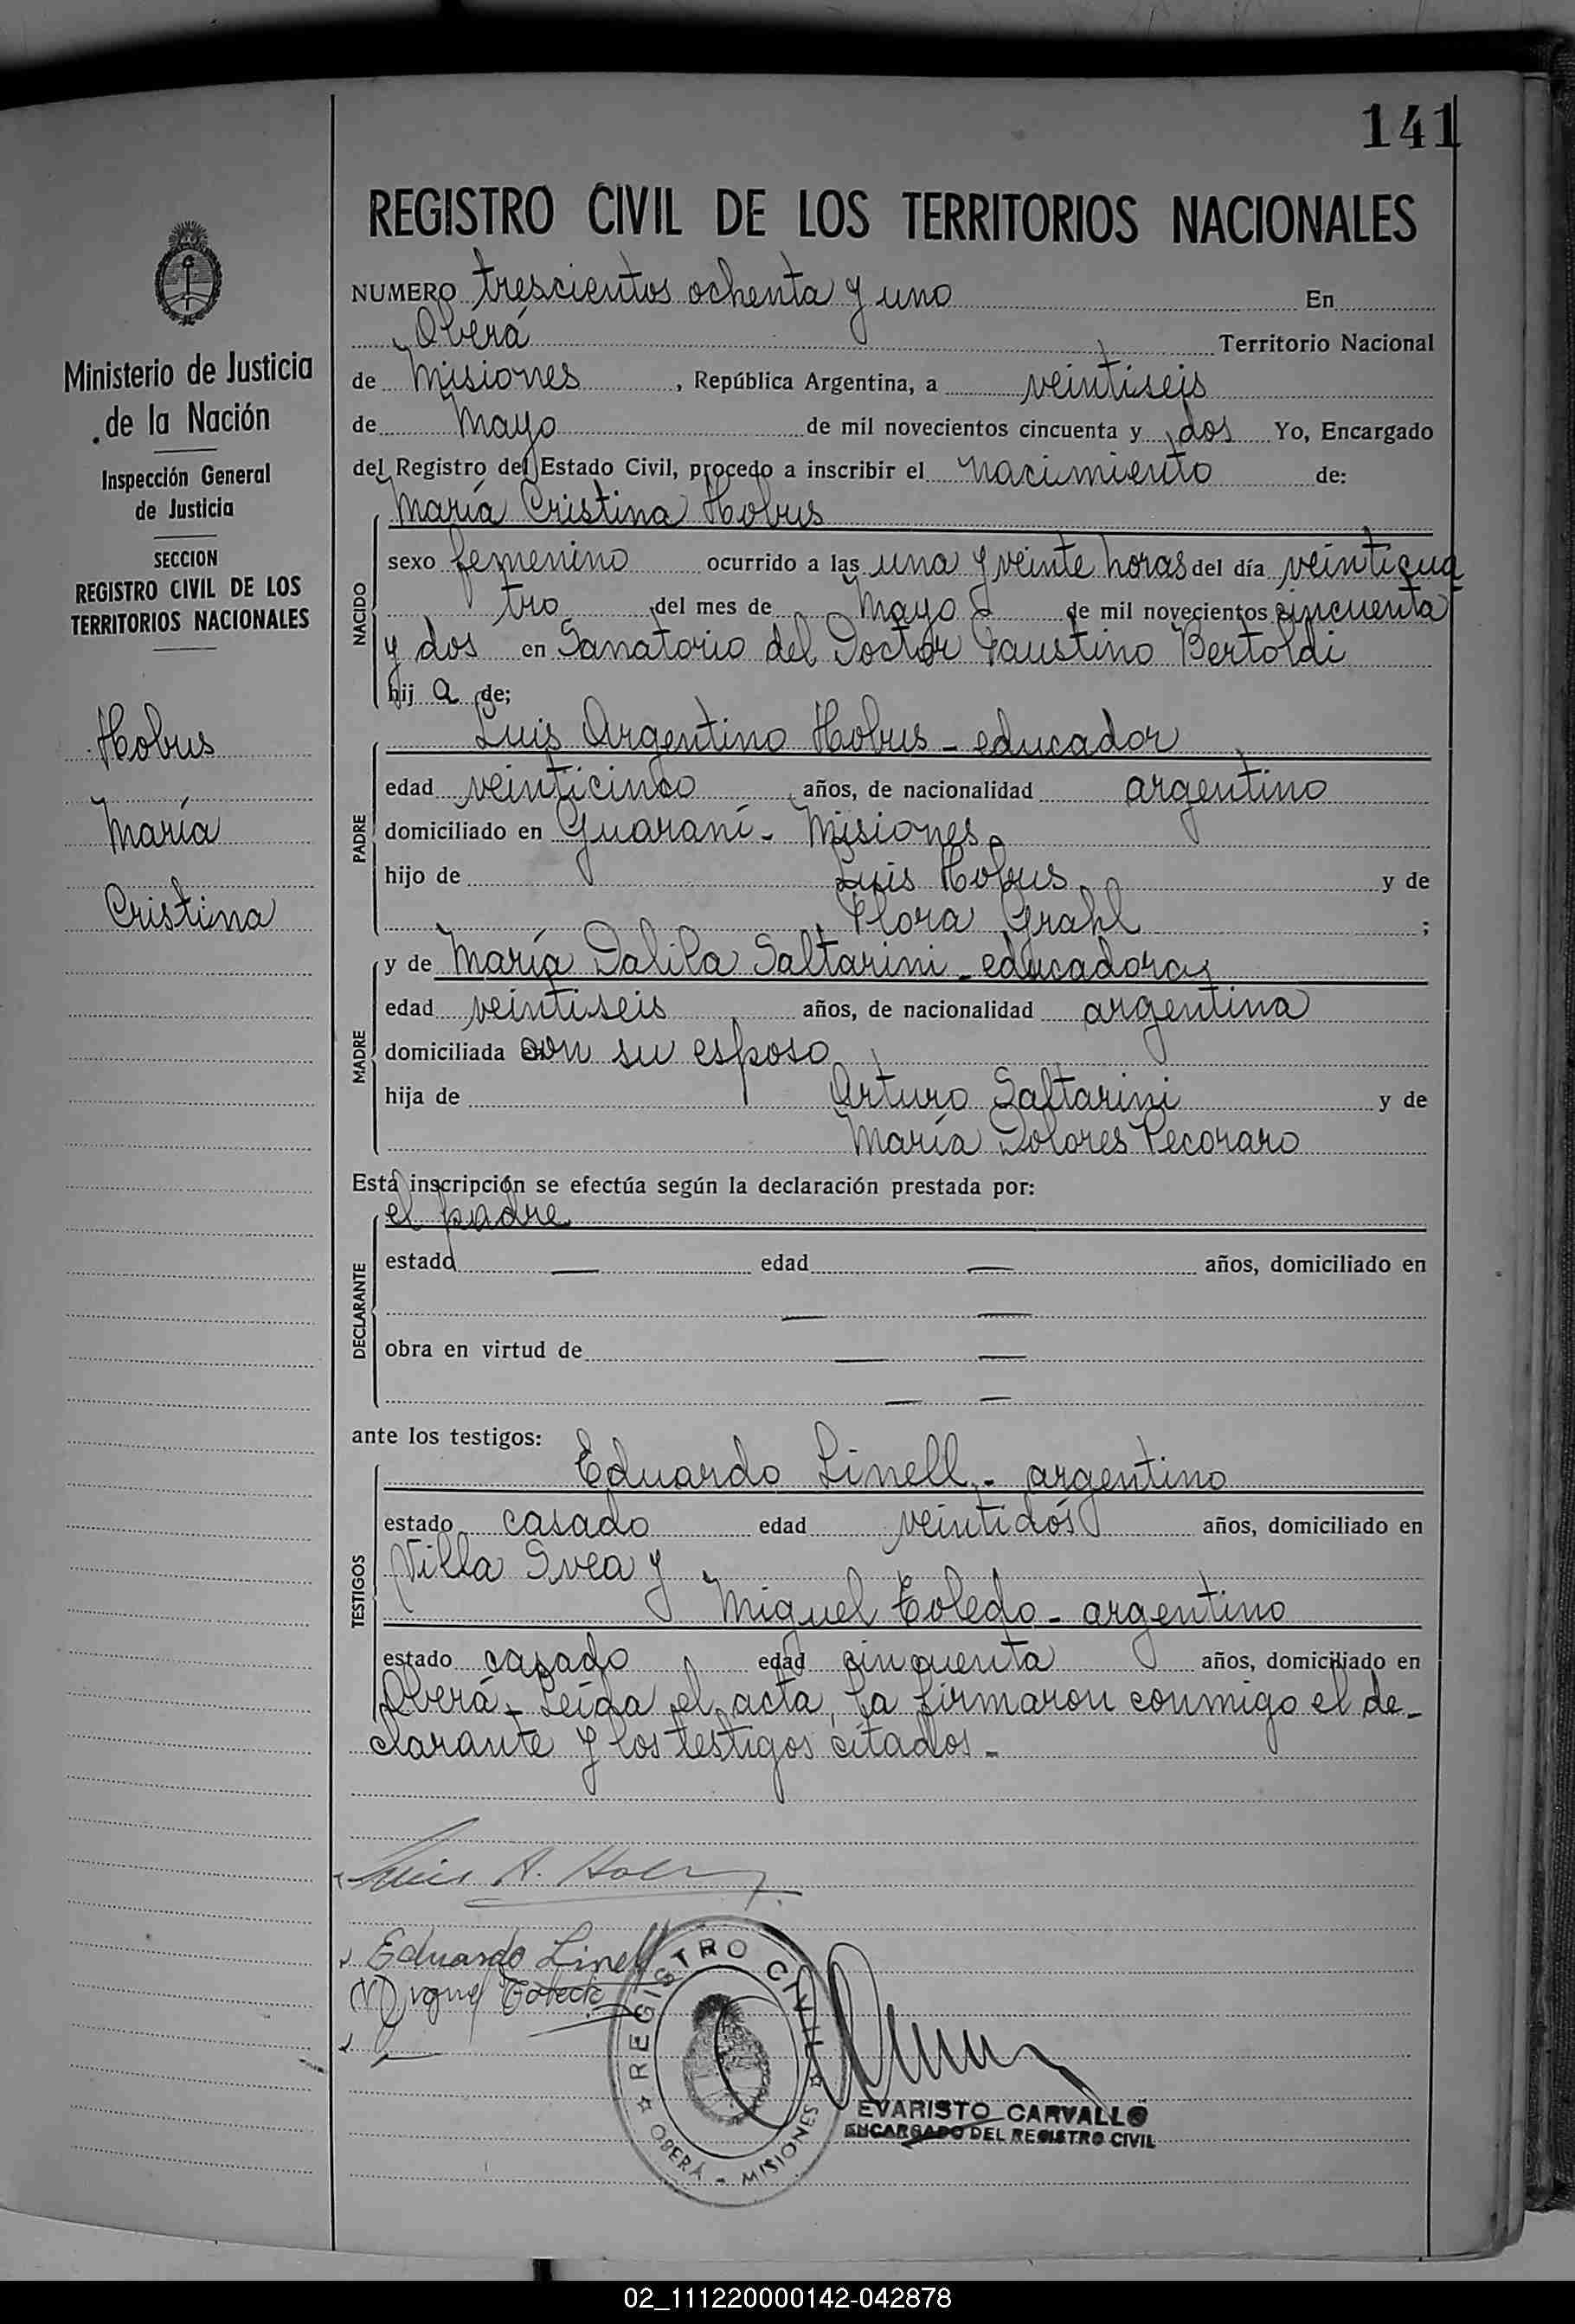 141
REGISTRO CIVIL DE LOS TERRITORIOS NACIONALES
Ministerio de Justicia
de la Nación
Inspección General
de Justicia
SECCION
REGISTRO CIVIL DE LOS
TERRITORIOS NACIONALES
Hobus
María
Cristina
NUMERO trescientos ochenta y uno En
Oberá Territorio Nacional
de Misiones, República Argentina, a veintiseis
de Mayo de mil novecientos cincuenta y dos Yo, Encargado
del Registro del Estado Civil, procedo a inscribir el nacimiento de:
María Cristina Hobus
NACIDO
sexo femenino ocurrido a las una y veinte horas del día veinticua
tro del mes de Mayo de mil novecientos cincuenta
y dos en Sanatorio del Doctor Faustino Bertoldi
hij a de;
Luis Argentino Hobus - educador
PADRE
edad veinticinco años, de nacionalidad argentino
domiciliado en Guaraní - Misiones
hijo de Luis Hobus y de
Flora Grahl ;
y de María Dalila Saltarini - educadora
MADRE
edad veintiseis años, de nacionalidad argentina
domiciliada con su esposo
hija de Arturo Saltarini y de
María Dolores Pecoraro
Esta inscripción se efectúa según la declaración prestada por:
el padre
DECLARANTE
estado — edad — años, domiciliado en
— —
obra en virtud de — —
— —
ante los testigos:
Eduardo Linell - argentino
TESTIGOS
estado casado edad veintidós años, domiciliado en
Villa Svea y
Miguel Toledo - argentino
estado casado edad cinquenta años, domiciliado en
Oberá - Leída el acta, la firmaron conmigo el de-
clarante y los testigos citados -
Luis A. Hobus
Eduardo Linell
Miguel Toledo
REGISTRO CIVIL
OBERÁ - MISIONES
EVARISTO CARVALLO
ENCARGADO DEL REGISTRO CIVIL
02_111220000142-042878